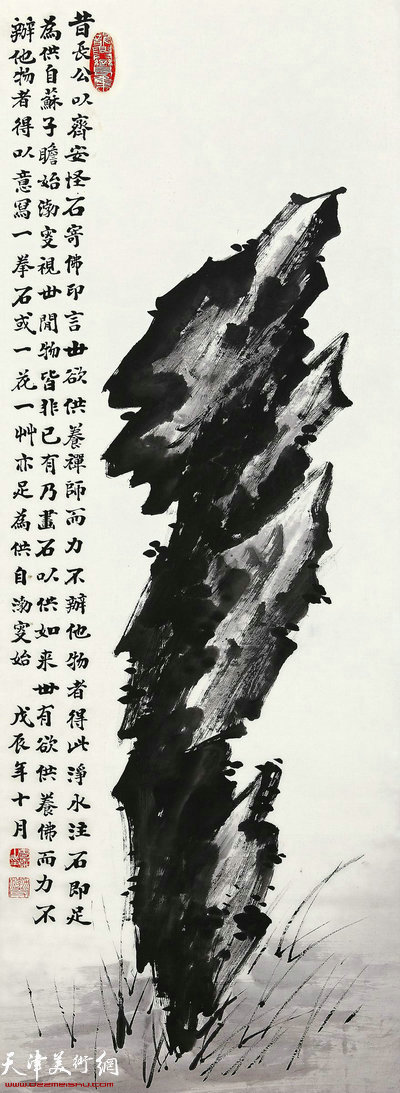 昔長公以齊安怪石寄佛印言世欲供養禪師而力不辦他物者得此淨水注石即足
為供自蘇子瞻始渤叟視世閒物皆非己有乃畫石以供如來世有欲供養佛而力不
辦他物者得以意寫一拳石或一花一艸亦足為供自渤叟始　戊辰年十月
天津美術網
www.022meishu.com